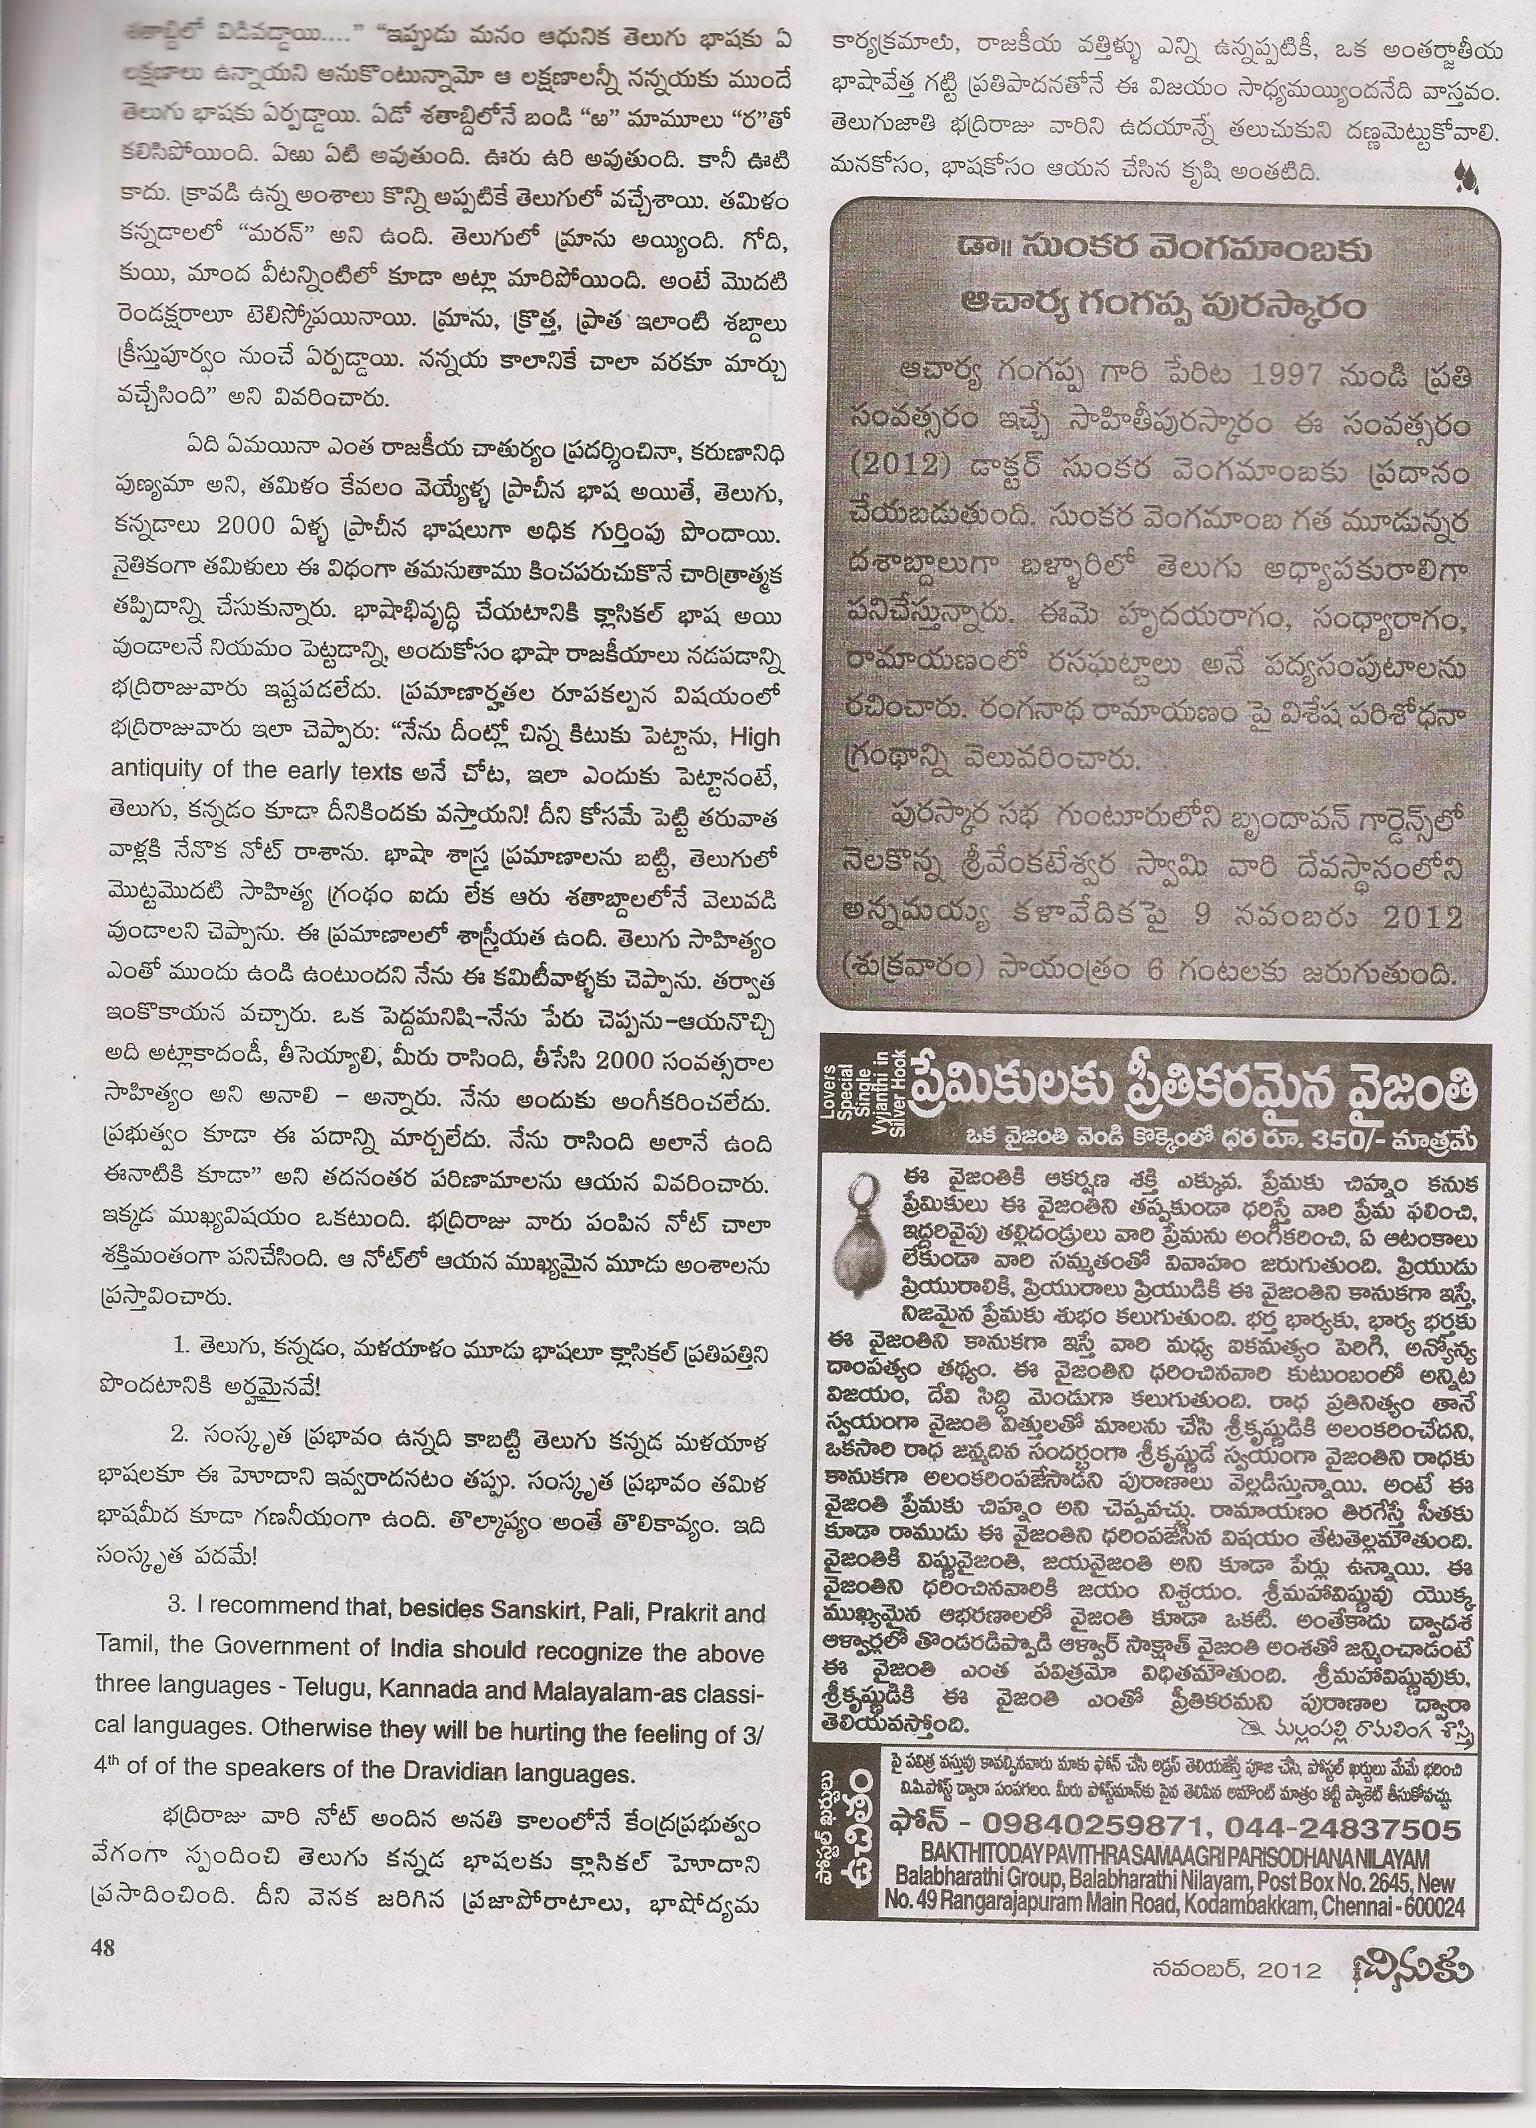 శతాబ్దిలో విడివడ్డాయి....” “ఇప్పుడు మనం ఆధునిక తెలుగు భాషకు ఏ
లక్షణాలు ఉన్నాయని అనుకొంటున్నామో ఆ లక్షణాలన్నీ నన్నయకు ముందే
తెలుగు భాషకు ఏర్పడ్డాయి. ఏడో శతాబ్దిలోనే బండి “ఱ” మామూలు “ర”తో
కలిసిపోయింది. ఏఱు ఏటి అవుతుంది. ఊరు ఉరి అవుతుంది. కానీ ఊటి
కాదు. క్రావడి ఉన్న అంశాలు కొన్ని అప్పటికే తెలుగులో వచ్చేశాయి. తమిళం
కన్నడాలలో “మరన్” అని ఉంది. తెలుగులో మ్రాను అయ్యింది. గోది,
కుయి, మాంద వీటన్నింటిలో కూడా అట్లా మారిపోయింది. అంటే మొదటి
రెండక్షరాలూ టెలిస్కోపయినాయి. మ్రాను, క్రొత్త, ప్రాత ఇలాంటి శబ్దాలు
క్రీస్తుపూర్వం నుంచే ఏర్పడ్డాయి. నన్నయ కాలానికే చాలా వరకూ మార్పు
వచ్చేసింది” అని వివరించారు.
ఏది ఏమయినా ఎంత రాజకీయ చాతుర్యం ప్రదర్శించినా, కరుణానిధి
పుణ్యమా అని, తమిళం కేవలం వెయ్యేళ్ళ ప్రాచీన భాష అయితే, తెలుగు,
కన్నడాలు 2000 ఏళ్ళ ప్రాచీన భాషలుగా అధిక గుర్తింపు పొందాయి.
నైతికంగా తమిళులు ఈ విధంగా తమనుతాము కించపరుచుకొనే చారిత్రాత్మక
తప్పిదాన్ని చేసుకున్నారు. భాషాభివృద్ధి చేయటానికి క్లాసికల్ భాష అయి
వుండాలనే నియమం పెట్టడాన్ని, అందుకోసం భాషా రాజకీయాలు నడపడాన్ని
భద్రిరాజువారు ఇష్టపడలేదు. ప్రమాణార్హతల రూపకల్పన విషయంలో
భద్రిరాజువారు ఇలా చెప్పారు: “నేను దీంట్లో చిన్న కిటుకు పెట్టాను, High
antiquity of the early texts అనే చోట, ఇలా ఎందుకు పెట్టానంటే,
తెలుగు, కన్నడం కూడా దీనికిందకు వస్తాయని! దీని కోసమే పెట్టి తరువాత
వాళ్లకి నేనొక నోట్ రాశాను. భాషా శాస్త్ర ప్రమాణాలను బట్టి, తెలుగులో
మొట్టమొదటి సాహిత్య గ్రంథం ఐదు లేక ఆరు శతాబ్దాలలోనే వెలువడి
వుండాలని చెప్పాను. ఈ ప్రమాణాలలో శాస్త్రీయత ఉంది. తెలుగు సాహిత్యం
ఎంతో ముందు ఉండి ఉంటుందని నేను ఈ కమిటీవాళ్ళకు చెప్పాను. తర్వాత
ఇంకొకాయన వచ్చారు. ఒక పెద్దమనిషి-నేను పేరు చెప్పను-ఆయనొచ్చి
అది అట్లాకాదండీ, తీసెయ్యాలి, మీరు రాసింది, తీసేసి 2000 సంవత్సరాల
సాహిత్యం అని అనాలి - అన్నారు. నేను అందుకు అంగీకరించలేదు.
ప్రభుత్వం కూడా ఈ పదాన్ని మార్చలేదు. నేను రాసింది అలానే ఉంది
ఈనాటికి కూడా” అని తదనంతర పరిణామాలను ఆయన వివరించారు.
ఇక్కడ ముఖ్యవిషయం ఒకటుంది. భద్రిరాజు వారు పంపిన నోట్ చాలా
శక్తిమంతంగా పనిచేసింది. ఆ నోట్‌లో ఆయన ముఖ్యమైన మూడు అంశాలను
ప్రస్తావించారు.
1. తెలుగు, కన్నడం, మళయాళం మూడు భాషలూ క్లాసికల్ ప్రతిపత్తిని
పొందటానికి అర్హమైనవే!
2. సంస్కృత ప్రభావం ఉన్నది కాబట్టి తెలుగు కన్నడ మళయాళ
భాషలకూ ఈ హెూదాని ఇవ్వరాదనటం తప్పు. సంస్కృత ప్రభావం తమిళ
భాషమీద కూడా గణనీయంగా ఉంది. తొల్కాప్యం అంతే తొలికావ్యం. ఇది
సంస్కృత పదమే!
3. I recommend that, besides Sanskirt, Pali, Prakrit and
Tamil, the Government of India should recognize the above
three languages - Telugu, Kannada and Malayalam-as classi-
cal languages. Otherwise they will be hurting the feeling of 3/
4th of of the speakers of the Dravidian languages.
భద్రిరాజు వారి నోట్ అందిన అనతి కాలంలోనే కేంద్రప్రభుత్వం
వేగంగా స్పందించి తెలుగు కన్నడ భాషలకు క్లాసికల్ హెూదాని
ప్రసాదించింది. దీని వెనక జరిగిన ప్రజాపోరాటాలు, భాషోద్యమ
కార్యక్రమాలు, రాజకీయ వత్తిళ్ళు ఎన్ని ఉన్నప్పటికీ, ఒక అంతర్జాతీయ
భాషావేత్త గట్టి ప్రతిపాదనతోనే ఈ విజయం సాధ్యమయ్యిందనేది వాస్తవం.
తెలుగుజాతి భద్రిరాజు వారిని ఉదయాన్నే తలుచుకుని దణ్ణమెట్టుకోవాలి.
మనకోసం, భాషకోసం ఆయన చేసిన కృషి అంతటిది.
డా॥ సుంకర వెంగమాంబకు
ఆచార్య గంగప్ప పురస్కారం
ఆచార్య గంగప్ప గారి పేరిట 1997 నుండి ప్రతి
సంవత్సరం ఇచ్చే సాహితీపురస్కారం ఈ సంవత్సరం
(2012) డాక్టర్ సుంకర వెంగమాంబకు ప్రదానం
చేయబడుతుంది. సుంకర వెంగమాంబ గత మూడున్నర
దశాబ్దాలుగా బళ్ళారిలో తెలుగు అధ్యాపకురాలిగా
పనిచేస్తున్నారు. ఈమె హృదయరాగం, సంధ్యారాగం,
రామాయణంలో రసఘట్టాలు అనే పద్యసంపుటాలను
రచించారు. రంగనాథ రామాయణం పై విశేష పరిశోధనా
గ్రంథాన్ని వెలువరించారు.
పురస్కార సభ గుంటూరులోని బృందావన్ గార్డెన్స్‌లో
నెలకొన్న శ్రీవేంకటేశ్వర స్వామి వారి దేవస్థానంలోని
అన్నమయ్య కళావేదికపై 9 నవంబరు 2012
(శుక్రవారం) సాయంత్రం 6 గంటలకు జరుగుతుంది.
Lovers
Special
Single
Vyjanthi in
Silver Hook
ప్రేమికులకు ప్రీతికరమైన వైజంతి
ఒక వైజంతి వెండి కొక్కెంలో ధర రూ. 350/- మాత్రమే
ఈ వైజంతికి ఆకర్షణ శక్తి ఎక్కువ. ప్రేమకు చిహ్నం కనుక
ప్రేమికులు ఈ వైజంతిని తప్పకుండా ధరిస్తే వారి ప్రేమ ఫలించి,
ఇద్దరివైపు తల్లిదండ్రులు వారి ప్రేమను అంగీకరించి, ఏ ఆటంకాలు
లేకుండా వారి సమ్మతంతో వివాహం జరుగుతుంది. ప్రియుడు
ప్రియురాలికి, ప్రియురాలు ప్రియుడికి ఈ వైజంతిని కానుకగా ఇస్తే,
నిజమైన ప్రేమకు శుభం కలుగుతుంది. భర్త భార్యకు, భార్య భర్తకు
ఈ వైజంతిని కానుకగా ఇస్తే వారి మధ్య ఐకమత్యం పెరిగి, అన్యోన్య
దాంపత్యం తథ్యం. ఈ వైజంతిని ధరించినవారి కుటుంబంలో అన్నిట
విజయం, దేవి సిద్ధి మెండుగా కలుగుతుంది. రాధ ప్రతినిత్యం తానే
స్వయంగా వైజంతి విత్తులతో మాలను చేసి శ్రీకృష్ణుడికి అలంకరించేదని,
ఒకసారి రాధ జన్మదిన సందర్భంగా శ్రీకృష్ణుడే స్వయంగా వైజంతిని రాధకు
కానుకగా అలంకరింపజేసాడని పురాణాలు వెల్లడిస్తున్నాయి. అంటే ఈ
వైజంతి ప్రేమకు చిహ్నం అని చెప్పవచ్చు. రామాయణం తిరగేస్తే సీతకు
కూడా రాముడు ఈ వైజంతిని ధరింపజేసిన విషయం తేటతెల్లమౌతుంది.
వైజంతికి విష్ణువైజంతి, జయవైజంతి అని కూడా పేర్లు ఉన్నాయి. ఈ
వైజంతిని ధరించినవారికి జయం నిశ్చయం. శ్రీమహావిష్ణువు యొక్క
ముఖ్యమైన ఆభరణాలలో వైజంతి కూడా ఒకటి. అంతేకాదు ద్వాదశ
ఆళ్వార్లలో తొండరడిప్పొడి ఆళ్వార్ సాక్షాత్ వైజంతి అంశతో జన్మించాడంటే
ఈ వైజంతి ఎంత పవిత్రమో విధితమౌతుంది. శ్రీమహావిష్ణువుకు,
శ్రీకృష్ణుడికి ఈ వైజంతి ఎంతో ప్రీతికరమని పురాణాల ద్వారా
తెలియవస్తోంది.
మల్లంపల్లి రామలింగ శాస్త్రి
పోస్టల్ ఖర్చులు
ఉచితం
పై పవిత్ర వస్తువు కావల్సినవారు మాకు ఫోన్ చేసి అడ్రస్ తెలియజేస్తే పూజ చేసి, పోస్టల్ ఖర్చులు మేమే భరించి
వి.పి.పోస్ట్ ద్వారా పంపగలం. మీరు పోస్ట్‌మాన్‌కు పైన తెలిపిన అమౌంట్ మాత్రం కట్టి ప్యాకెట్ తీసుకోవచ్చు.
ఫోన్ - 09840259871, 044-24837505
BAKTHITODAY PAVITHRA SAMAAGRI PARISODHANA NILAYAM
Balabharathi Group, Balabharathi Nilayam, Post Box No. 2645, New
No. 49 Rangarajapuram Main Road, Kodambakkam, Chennai - 600024
48
నవంబర్, 2012
చినుకు